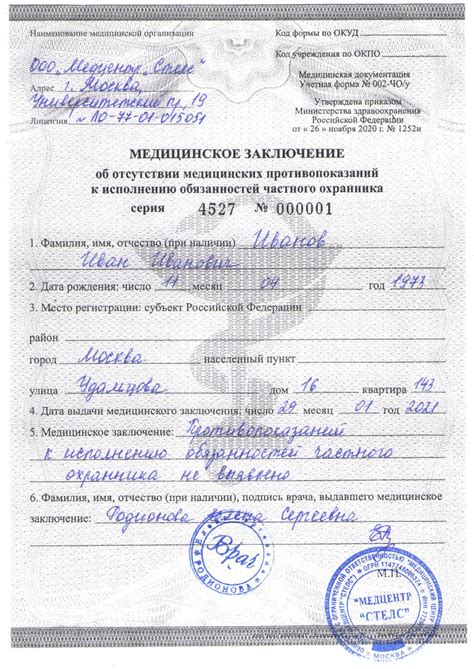 Наименование медицинской организации
Код формы по ОКУД
Код учреждения по ОКПО
ООО „Медцентр „Стелс"
Адрес г. Москва,
Университетский пр., 19
Лицензия № ЛО-77-01-015051
Медицинская документация
Учетная форма № 002-ЧО/у
Утверждена приказом
Министерства здравоохранения
Российской Федерации
от « 26 » ноября 2020 г. № 1252н
МЕДИЦИНСКОЕ ЗАКЛЮЧЕНИЕ
об отсутствии медицинских противопоказаний
к исполнению обязанностей частного охранника
серия 4527 № 000001
1. Фамилия, имя, отчество (при наличии) Иванов
Иван Иванович
2. Дата рождения: число 11 месяц 04 год 1973
3. Место регистрации: субъект Российской Федерации
район
город Москва населенный пункт
улица Удальцова дом 16 квартира 143
4. Дата выдачи медицинского заключения: число 29 месяц 01 год 2021
5. Медицинское заключение: Противопоказаний
к исполнению обязанностей частного
охранника не выявлено
6. Фамилия, имя, отчество (при наличии), подпись врача, выдавшего медицинское
заключение: Родионова Елена Сергеевна
Врач
РОДИОНОВА
М.П.
"МЕДЦЕНТР
"СТЕЛС"
МОСКВА